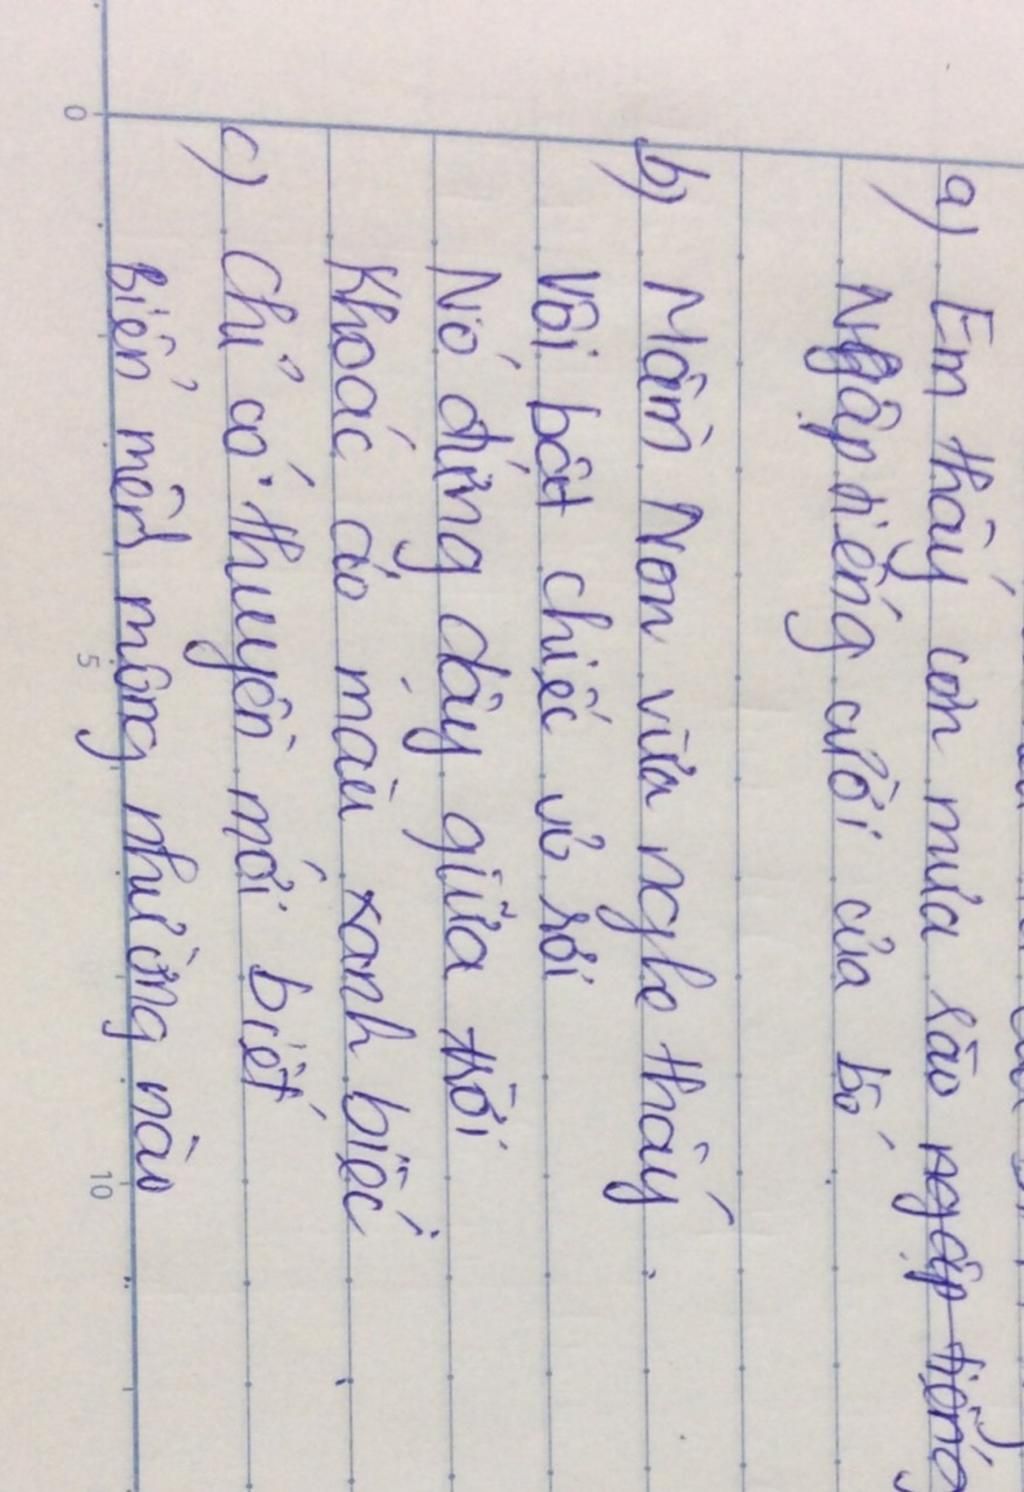 a) Em thấy cơn mưa rào ngập tiếng
Ngập tiếng cười của bố
b) Mầm Non vừa nghe thấy
Vội bật chiếc vỏ rơi
Nó đứng dậy giữa trời
Khoác áo màu xanh biếc
c) Chỉ có thuyền mới biết
Biển mênh mông nhường nào
0
5
10